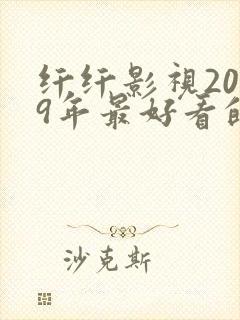 纤纤影視20
9年最好看的
沙克斯